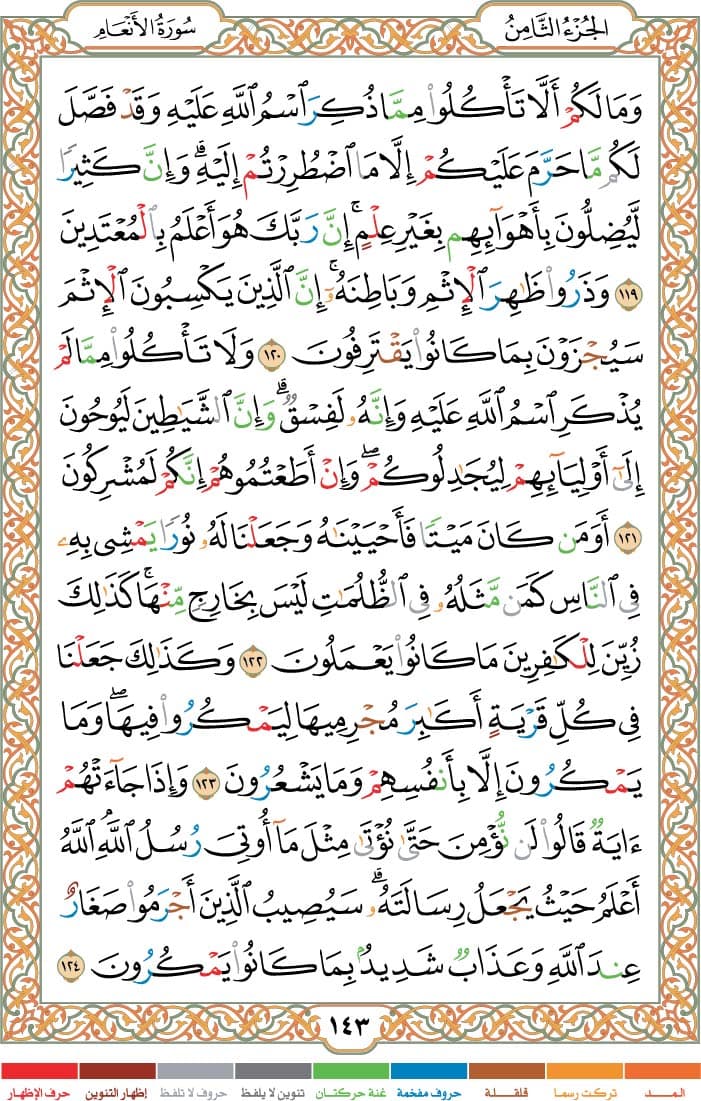 الجُزْءُ الثَّامِنُ
سُورَةُ الأَنْعَامِ
وَمَا لَكُمْ أَلَّا تَأْكُلُوا۟ مِمَّا ذُكِرَ ٱسْمُ ٱللَّهِ عَلَيْهِ وَقَدْ فَصَّلَ
لَكُم مَّا حَرَّمَ عَلَيْكُمْ إِلَّا مَا ٱضْطُرِرْتُمْ إِلَيْهِ ۗ وَإِنَّ كَثِيرًا
لَّيُضِلُّونَ بِأَهْوَآئِهِم بِغَيْرِ عِلْمٍ ۗ إِنَّ رَبَّكَ هُوَ أَعْلَمُ بِٱلْمُعْتَدِينَ
١١٩ وَذَرُوا۟ ظَٰهِرَ ٱلْإِثْمِ وَبَاطِنَهُۥٓ ۚ إِنَّ ٱلَّذِينَ يَكْسِبُونَ ٱلْإِثْمَ
سَيُجْزَوْنَ بِمَا كَانُوا۟ يَقْتَرِفُونَ ١٢٠ وَلَا تَأْكُلُوا۟ مِمَّا لَمْ
يُذْكَرِ ٱسْمُ ٱللَّهِ عَلَيْهِ وَإِنَّهُۥ لَفِسْقٌ ۗ وَإِنَّ ٱلشَّيَٰطِينَ لَيُوحُونَ
إِلَىٰٓ أَوْلِيَآئِهِمْ لِيُجَٰدِلُوكُمْ ۖ وَإِنْ أَطَعْتُمُوهُمْ إِنَّكُمْ لَمُشْرِكُونَ
١٢١ أَوَمَن كَانَ مَيْتًا فَأَحْيَيْنَٰهُ وَجَعَلْنَا لَهُۥ نُورًا يَمْشِى بِهِۦ
فِى ٱلنَّاسِ كَمَن مَّثَلُهُۥ فِى ٱلظُّلُمَٰتِ لَيْسَ بِخَارِجٍ مِّنْهَا ۚ كَذَٰلِكَ
زُيِّنَ لِلْكَٰفِرِينَ مَا كَانُوا۟ يَعْمَلُونَ ١٢٢ وَكَذَٰلِكَ جَعَلْنَا
فِى كُلِّ قَرْيَةٍ أَكَٰبِرَ مُجْرِمِيهَا لِيَمْكُرُوا۟ فِيهَا ۖ وَمَا
يَمْكُرُونَ إِلَّا بِأَنفُسِهِمْ وَمَا يَشْعُرُونَ ١٢٣ وَإِذَا جَآءَتْهُمْ
ءَايَةٌ قَالُوا۟ لَن نُّؤْمِنَ حَتَّىٰ نُؤْتَىٰ مِثْلَ مَآ أُوتِىَ رُسُلُ ٱللَّهِ ۘ ٱللَّهُ
أَعْلَمُ حَيْثُ يَجْعَلُ رِسَالَتَهُۥ ۗ سَيُصِيبُ ٱلَّذِينَ أَجْرَمُوا۟ صَغَارٌ
عِندَ ٱللَّهِ وَعَذَابٌ شَدِيدٌۢ بِمَا كَانُوا۟ يَمْكُرُونَ ١٢٤
١٤٣
المــــد تركت رسما قلقـــلة حروف مفخمة غنة حركتـان تنوين لا يلفظ حروف لا تلفظ إظهار التنوين حرف الإظهار